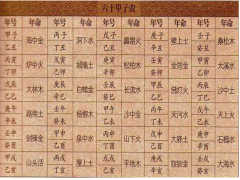 六十甲子表
年号 年命 年号 年命 年号 年命 年号 年命 年号 年命
甲子 丙子 戊子 庚子 壬子
海中金 涧下水 霹雳火 壁上土 桑松木
乙丑 丁丑 己丑 辛丑 癸丑
丙寅 戊寅 庚寅 壬寅 甲寅
炉中火 城墙土 松柏木 金箔金 大溪水
丁卯 己卯 辛卯 癸卯 乙卯
戊辰 庚辰 壬辰 甲辰 丙辰
大林木 白蜡金 长流水 佛灯火 沙中土
己巳 辛巳 癸巳 乙巳 丁巳
庚午 壬午 甲午 丙午 戊午
路旁土 杨柳木 沙中金 天河水 天上火
辛未 癸未 乙未 丁未 己未
壬申 甲申 丙申 戊申 庚申
剑锋金 泉中水 山下火 大驿土 石榴木
癸酉 乙酉 丁酉 己酉 辛酉
甲戌 丙戌 戊戌 庚戌 壬戌
山头火 屋上土 平地木 钗钏金 大海水
乙亥 丁亥 己亥 辛亥 癸亥